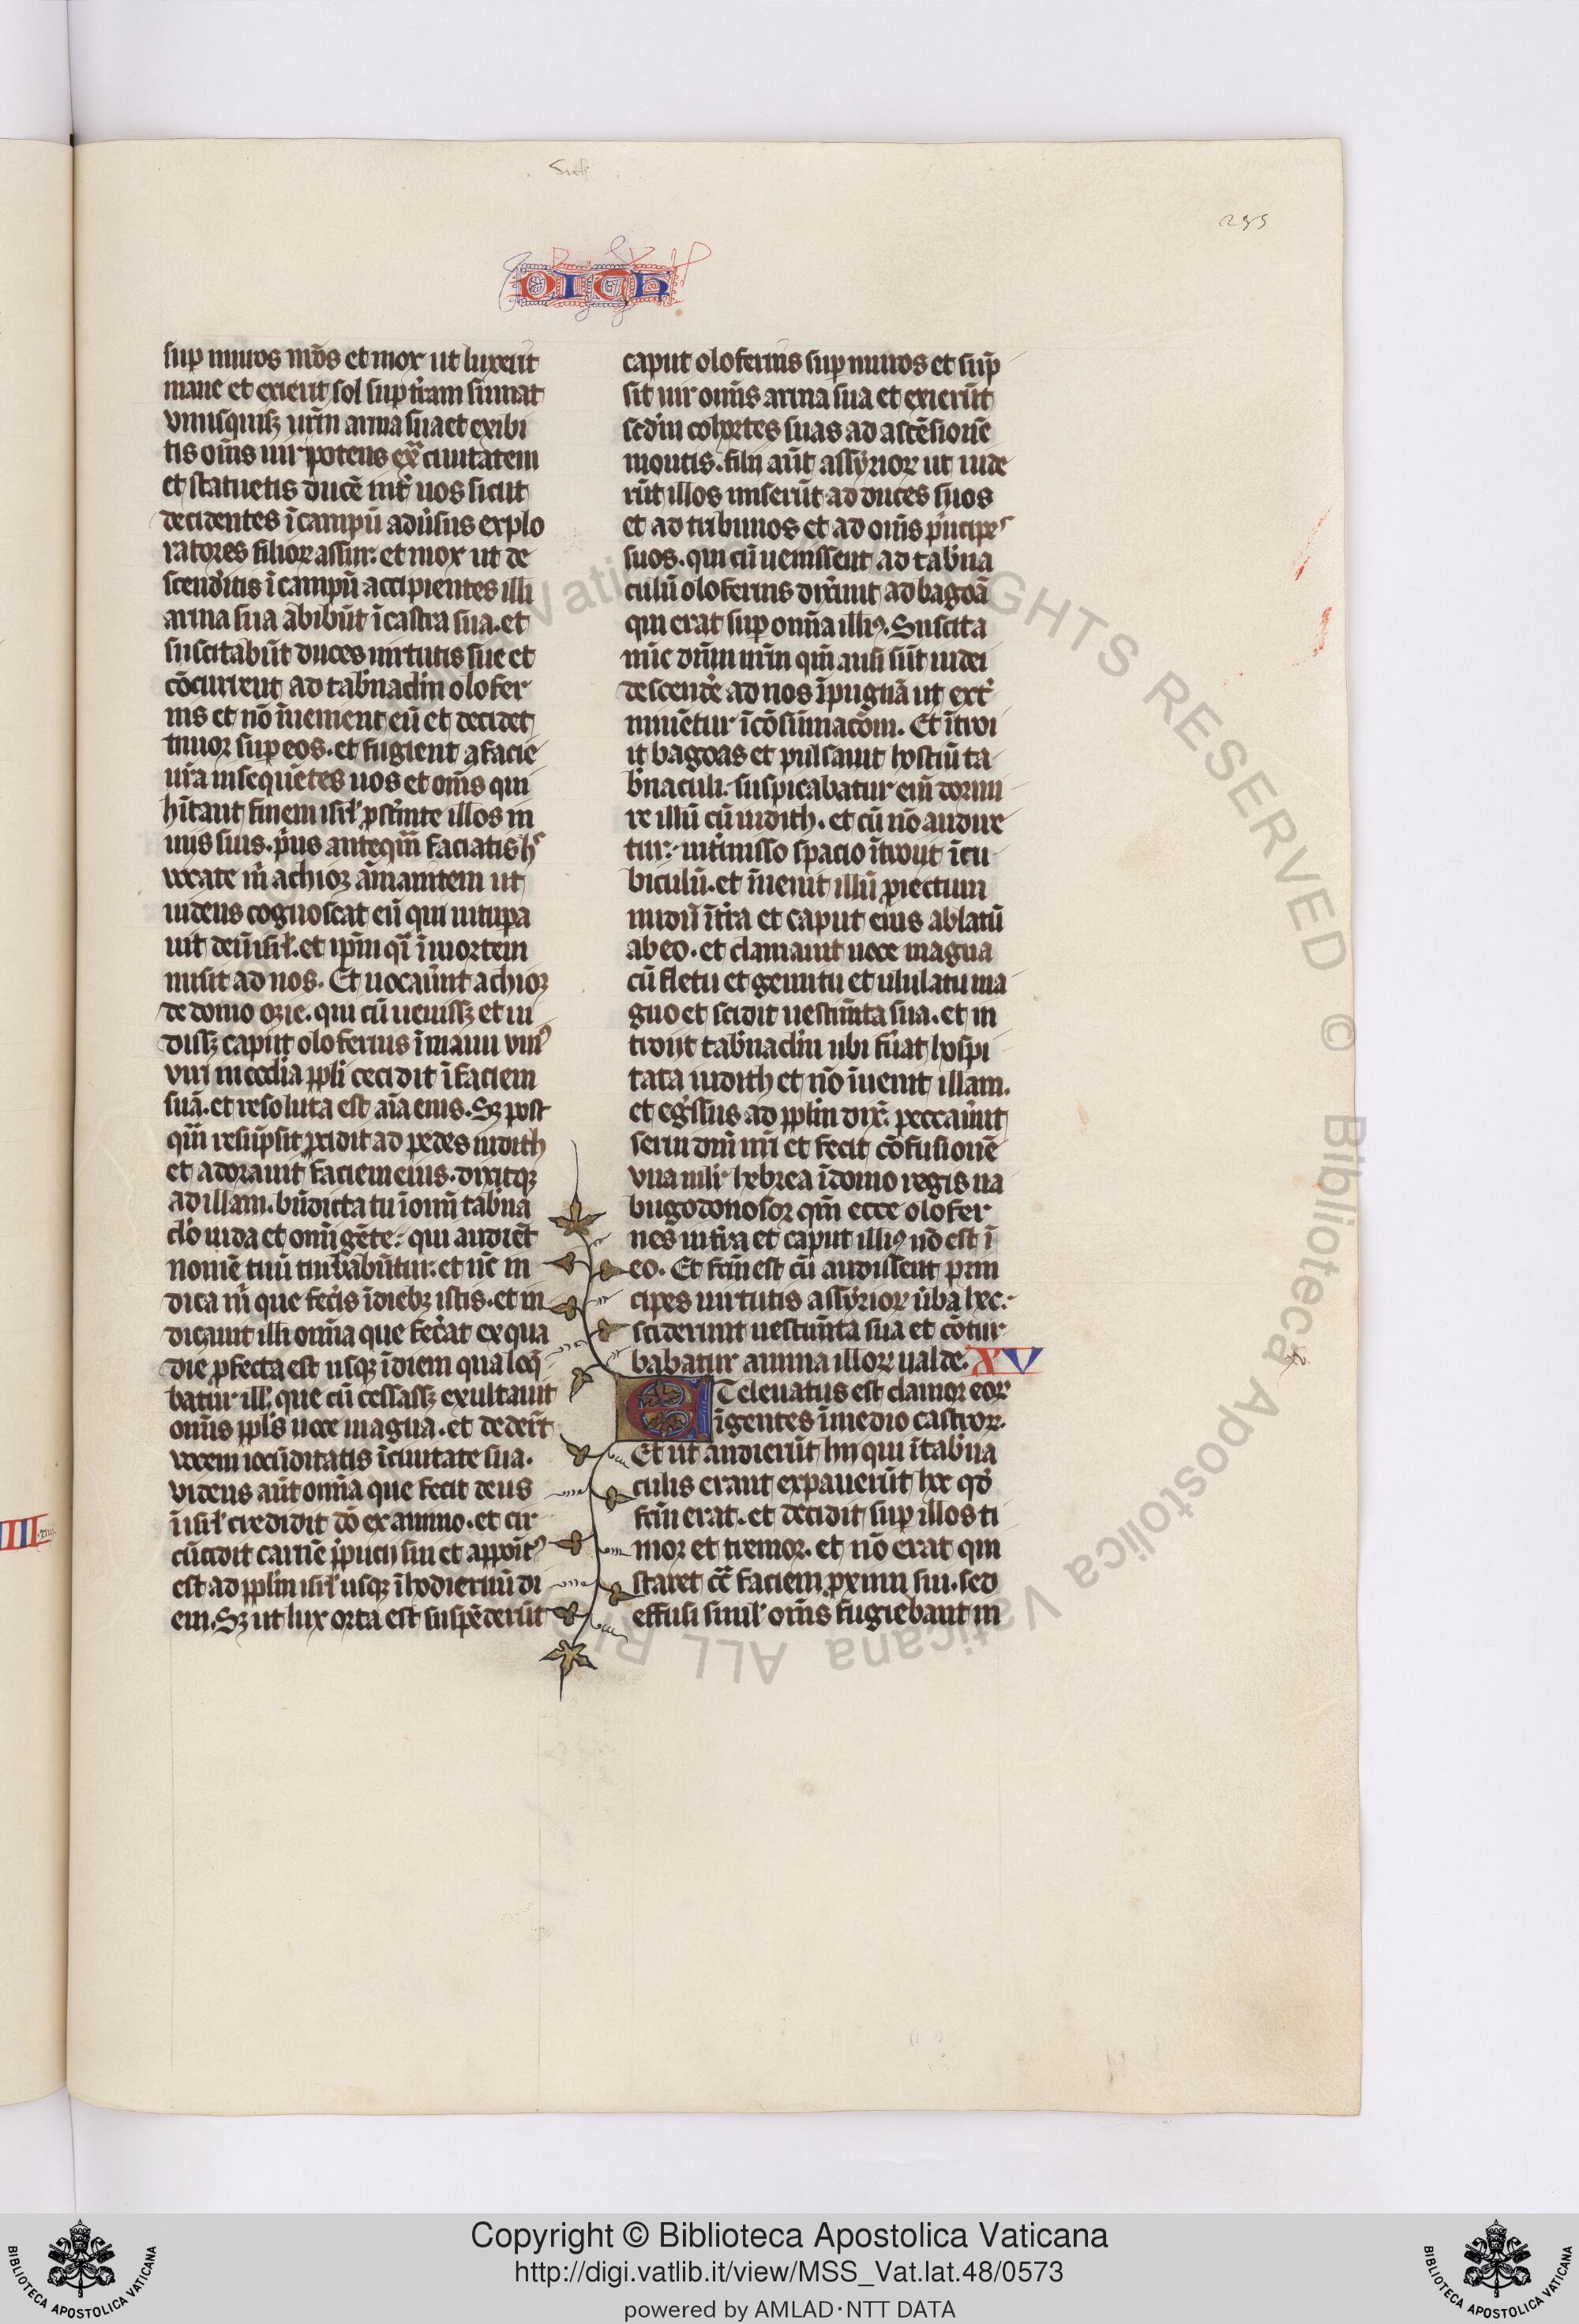 255
DICH
sup̱ muros urōs et mox ut luxerit
mane et exierit sol sup̱ tr̄am sumat
vnusquisqꝫ urm̄ arma sua et exibi
tis om̄s uir potens ex̄ ciuitatem
et statuetis ducē int̄ uos sicut
decidentes ī campū adūsus explo
ratores filioꝝ assur: et mox ut de
scendītis ī campū accipientes illi
arma sua abibūt ī castra sua. et
suscitabūt duces uirtutis sue et
cōcurrent ad tab̄naclm̄ olofer
nis et nō īuenient eū et decidet
timor sup̱ eos. et fugient a facie
ur̄a insequētes uos et om̄s qui
hītant finem isrl̄ pst̄nite illos in
uiis suis. p̄us anteqm̄ faciatis h̄
uocate m̄ achioꝝ āmanitem ut
uidens cognoscat eū qui uitupa
uit deū isrl̄. et ip̄m qī ī mortem
misit ad nos. Et uocaūnt achioꝝ
de domo ozie. qui cū uenissꝫ et ui
dissꝫ caput olofernis ī manu vniꝰ
viri in ecclīa ppl̄i cecidit ī faciem
suā. et resoluta est aīa eius. Sꝫ post
qm̄ resūpsit pcidit ad pedes iudith
et adorauit faciem eius. dixitqꝫ
ad illam. bn̄dicta tu ī om̄ tab̄na
clo iuda et om̄i gēte: qui audiēt
nomē tuū turbabūtur: et nc̄ in
dica m̄ que fecīs ī diebꝫ istis. et in
dicauit illi om̄ia que fecāt ex qua
die pfecta est usqꝫ ī diem qua loq̄
batur ill̄. que cū cessassꝫ exultauit
om̄is ppl̄s uoce magna. et dedēt
uocem iocūditatis ī ciuitate sua.
videns aūt om̄ia que fecit deus
ī isrl̄ credidit dō ex animo. et cir
cūcidit carnē p̄pucij sui et appoītꝰ
est ad pplm̄ isrl̄ usqꝫ ī hodiernū di
em. Sꝫ ut lux orta est suspēderūt
caput olofernis sup̱ muros et sūp
sit uir om̄is arma sua et exierūt
sedm̄ cohortes suas ad ascēsionē
montis. filij aūt assyrioꝝ ut uide
rūt illos miserūt ad duces suos
et ad tribunos et ad om̄s p̄ncipes
suos. qui cū uenissent ad tab̄na
culū olofernis dixūnt ad bagoā
qui erat sup̱ om̄ia illiꝰ. Suscita
nūc dn̄m nrm̄ qm̄ ausi sūt iudei
descendē ad nos īpugnā ut ext̄
minētur ī cōsūmacōm̄. Et ītroi
it bagoas et pulsauit hostiū ta
b̄naculi: suspicabatur eni᷑ dormi
re illū cū iudith. et cū nō audire
tur: int̄misso spacio ītroijt ī cu
biculū. et īuenit illū proiectum
nudū ī tr̄a et caput eius ablatū
ab eo. et clamauit uoce magna
cū fletu et gemitu et ululatu ma
gno et scidit uestim̄ta sua. et in
troijt tab̄naclm̄ ubi fūat hospi
tata iudith et nō īuenit illam.
et eḡssus ad pplm̄ dix̄: peccaūnt
serui dn̄i nr̄i et fecit cōfusionē
vna mlī hebrea ī domo regis na
bugodonosoꝝ qm̄ ecce olofer
nes in tr̄a et caput illiꝰ nō est ī
eo. Et fcm̄ est cū audissent prin
cipes uirtutis assyrioꝝ ūba hec:
sciderunt uestim̄ta sua et cōtur
babatur anima illoꝝ ualde. XV
ET eleuatus est clamoꝝ eoꝝ
īgentes ī medio castroꝝ.
Et ut audierūt hij qui ī tab̄na
culis erant expauerūt hoc qḏ
fcm̄ erat. et decidit sup̱ illos ti
moꝝ et tremoꝝ. et nō erat qui
staret cc̄ faciem pximi sui. sed
effusi simul om̄s fugiebant in
IIII
Copyright © Biblioteca Apostolica Vaticana
http://digi.vatlib.it/view/MSS_Vat.lat.48/0573
powered by AMLAD·NTT DATA
BIBLIOTECA APOSTOLICA VATICANA
BIBLIOTECA APOSTOLICA VATICANA